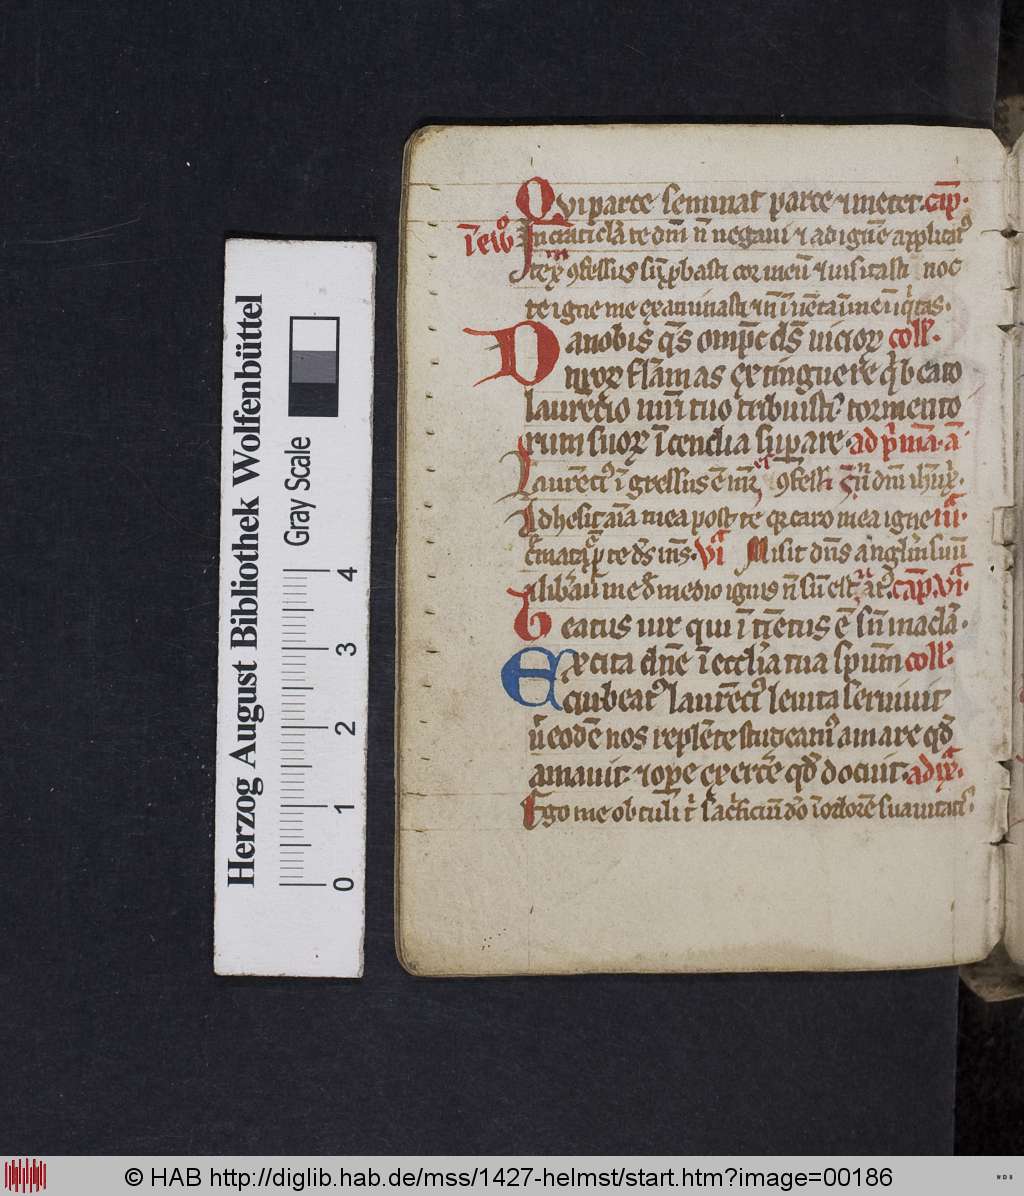 Qui parce seminat parce ⁊ metet. cap̄.
ī ew̄ In craticla te dm̄ n̄ negaui ⁊ ad igne applicatꝰ
te xp̄m ꝯfessus sū ꝓbasti cor meū ⁊ uisitasti noc
te igne me examinasti ⁊ n̄ ē ī uēta ī me iniqͥtas.
Da nobis qs̄ omp̄c ds̄ uicioꝝ coll̄.
nr̄oꝝ flam̄as extinguere qͥ beato
laurētio tribuisti tormento
rum suoꝝ īcendia suꝑare. ad pͥmā. ā
Laurētꝰ īgressus ē mr̄ ꝯfess
Adhesit aīa mea post te qꝛ caro mea igne iii
cͤmata ꝑ te ds̄ ms̄. vi Misit dn̄s anglm̄ suū
⁊ libauit me de medio ignis ⁊ n̄ sū estuatꝰ. cap̄. vi
Beatus uir qui īuētus ē sn̄ macla.
Excita dn̄e ī eccl̄ia tua spm̄ coll̄.
cui beatꝰ laurētꝰ leuita seruiuit
ut eodē nos replēte studeamꝰ amare qd̄
amauit ⁊ oꝑe exercē qd̄ docuit. ad ix.
Ego me obtuli sacͥficiū dō ī odorē suauitatis
Herzog August Bibliothek Wolfenbüttel
Gray Scale
0 1 2 3 4
© HAB http://diglib.hab.de/mss/1427-helmst/start.htm?image=00186